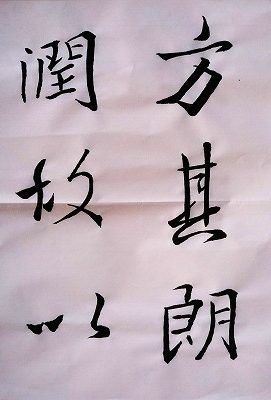 方其朗
潤故以